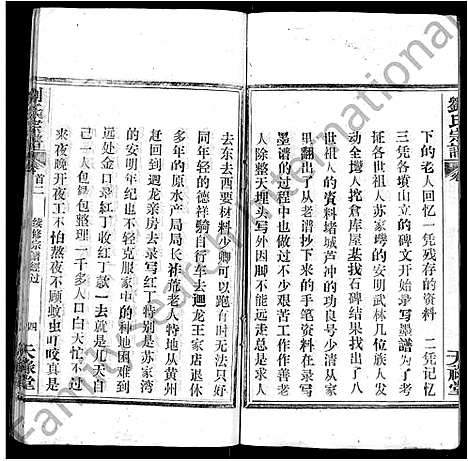 劉氏宗譜
天祿堂
下的老人回忆一凭残存的资料 二凭记忆
三凭各墳山立的碑文开始录写墨谱 为了
动全墢人挖倉库屋基找石碑结果找出了八
世祖人的碑文世祖人苏家墺的安明武林几位族人发
世祖人的资料堵城芦冲的功良号少清从
里翻出了从老谱抄下来的手笔资料在录写
墨谱的过程中也做过不少艰苦工作作善老
人除整天埋头写外因脚不能走就安排别人
去东去西要材料少卿可以跑有时无法只好
同年轻的德祥骑自行车去迴龙王家店联宗
多年的原水产局局长祚蔴老人特地从黄州
迴到迴龙亲房去录写红丁特别是苏家湾
的安明年纪也不轻克服家中的种地困难到
远处金口录红丁收红丁款一去就是几天自
己一人包録包整理二千多人口白天忙不过
来夜晚开夜工不怕熬夜不顾蚊虫叮咬真是
劉氏宗譜
卷首一
续修宗谱经过
四
天祿堂
Family Search International